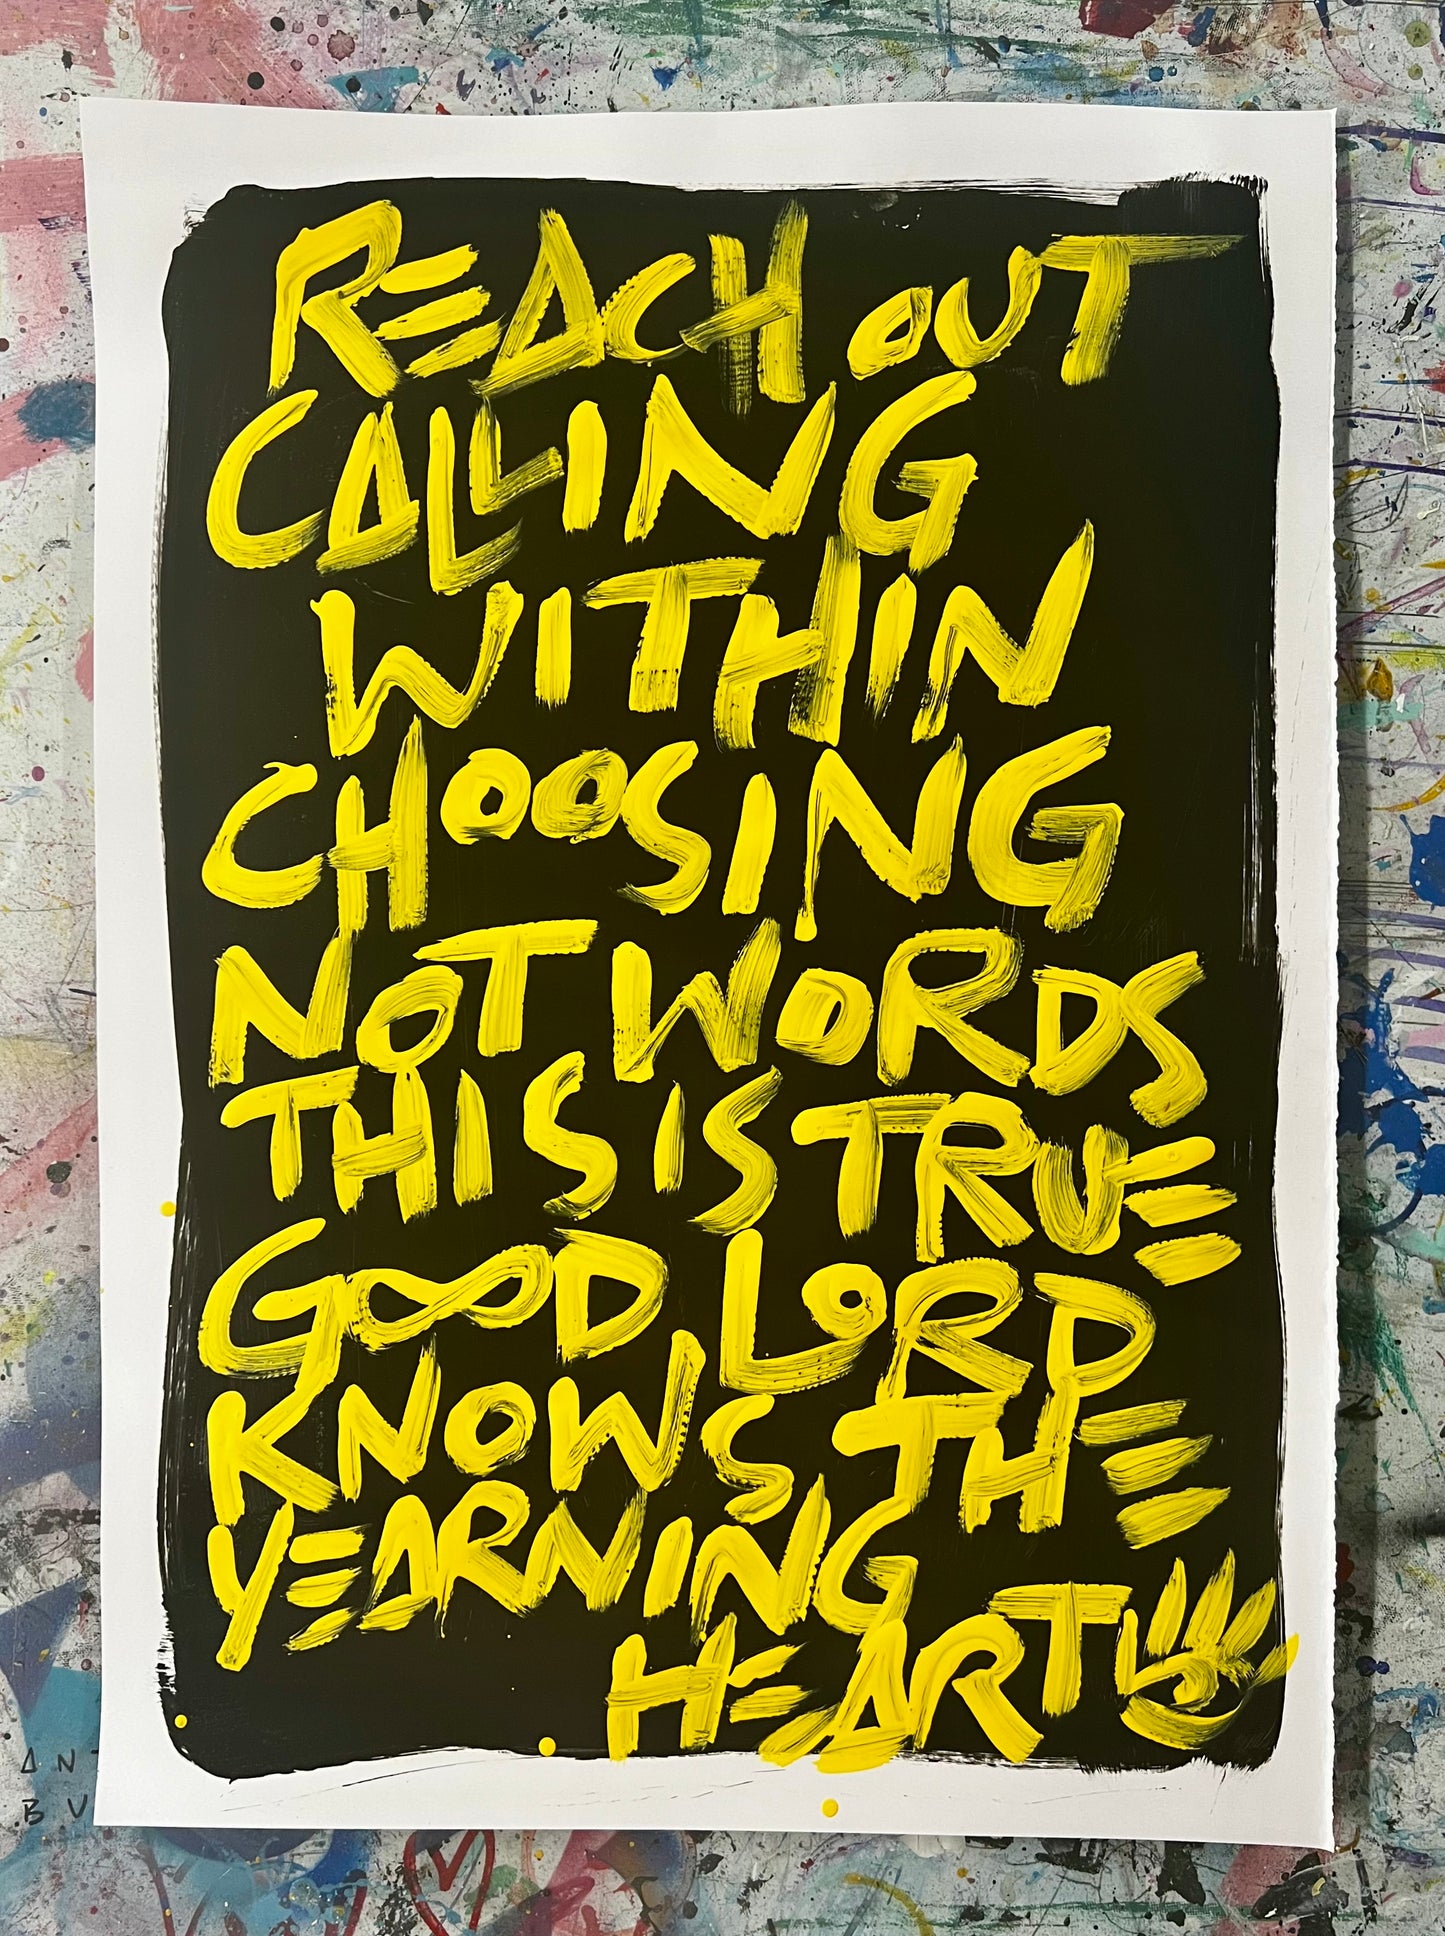 REACH OUT
CALLING
WITHIN
CHOOSING
NOT WORDS
THIS IS TRUE
GOOD LORD
KNOWS THE
YEARNING
HEART
ANT
BU